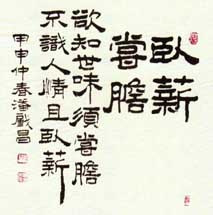 臥薪
嘗膽
欲知世味須嘗膽
不識人情且臥薪
甲申仲春潘戲昌